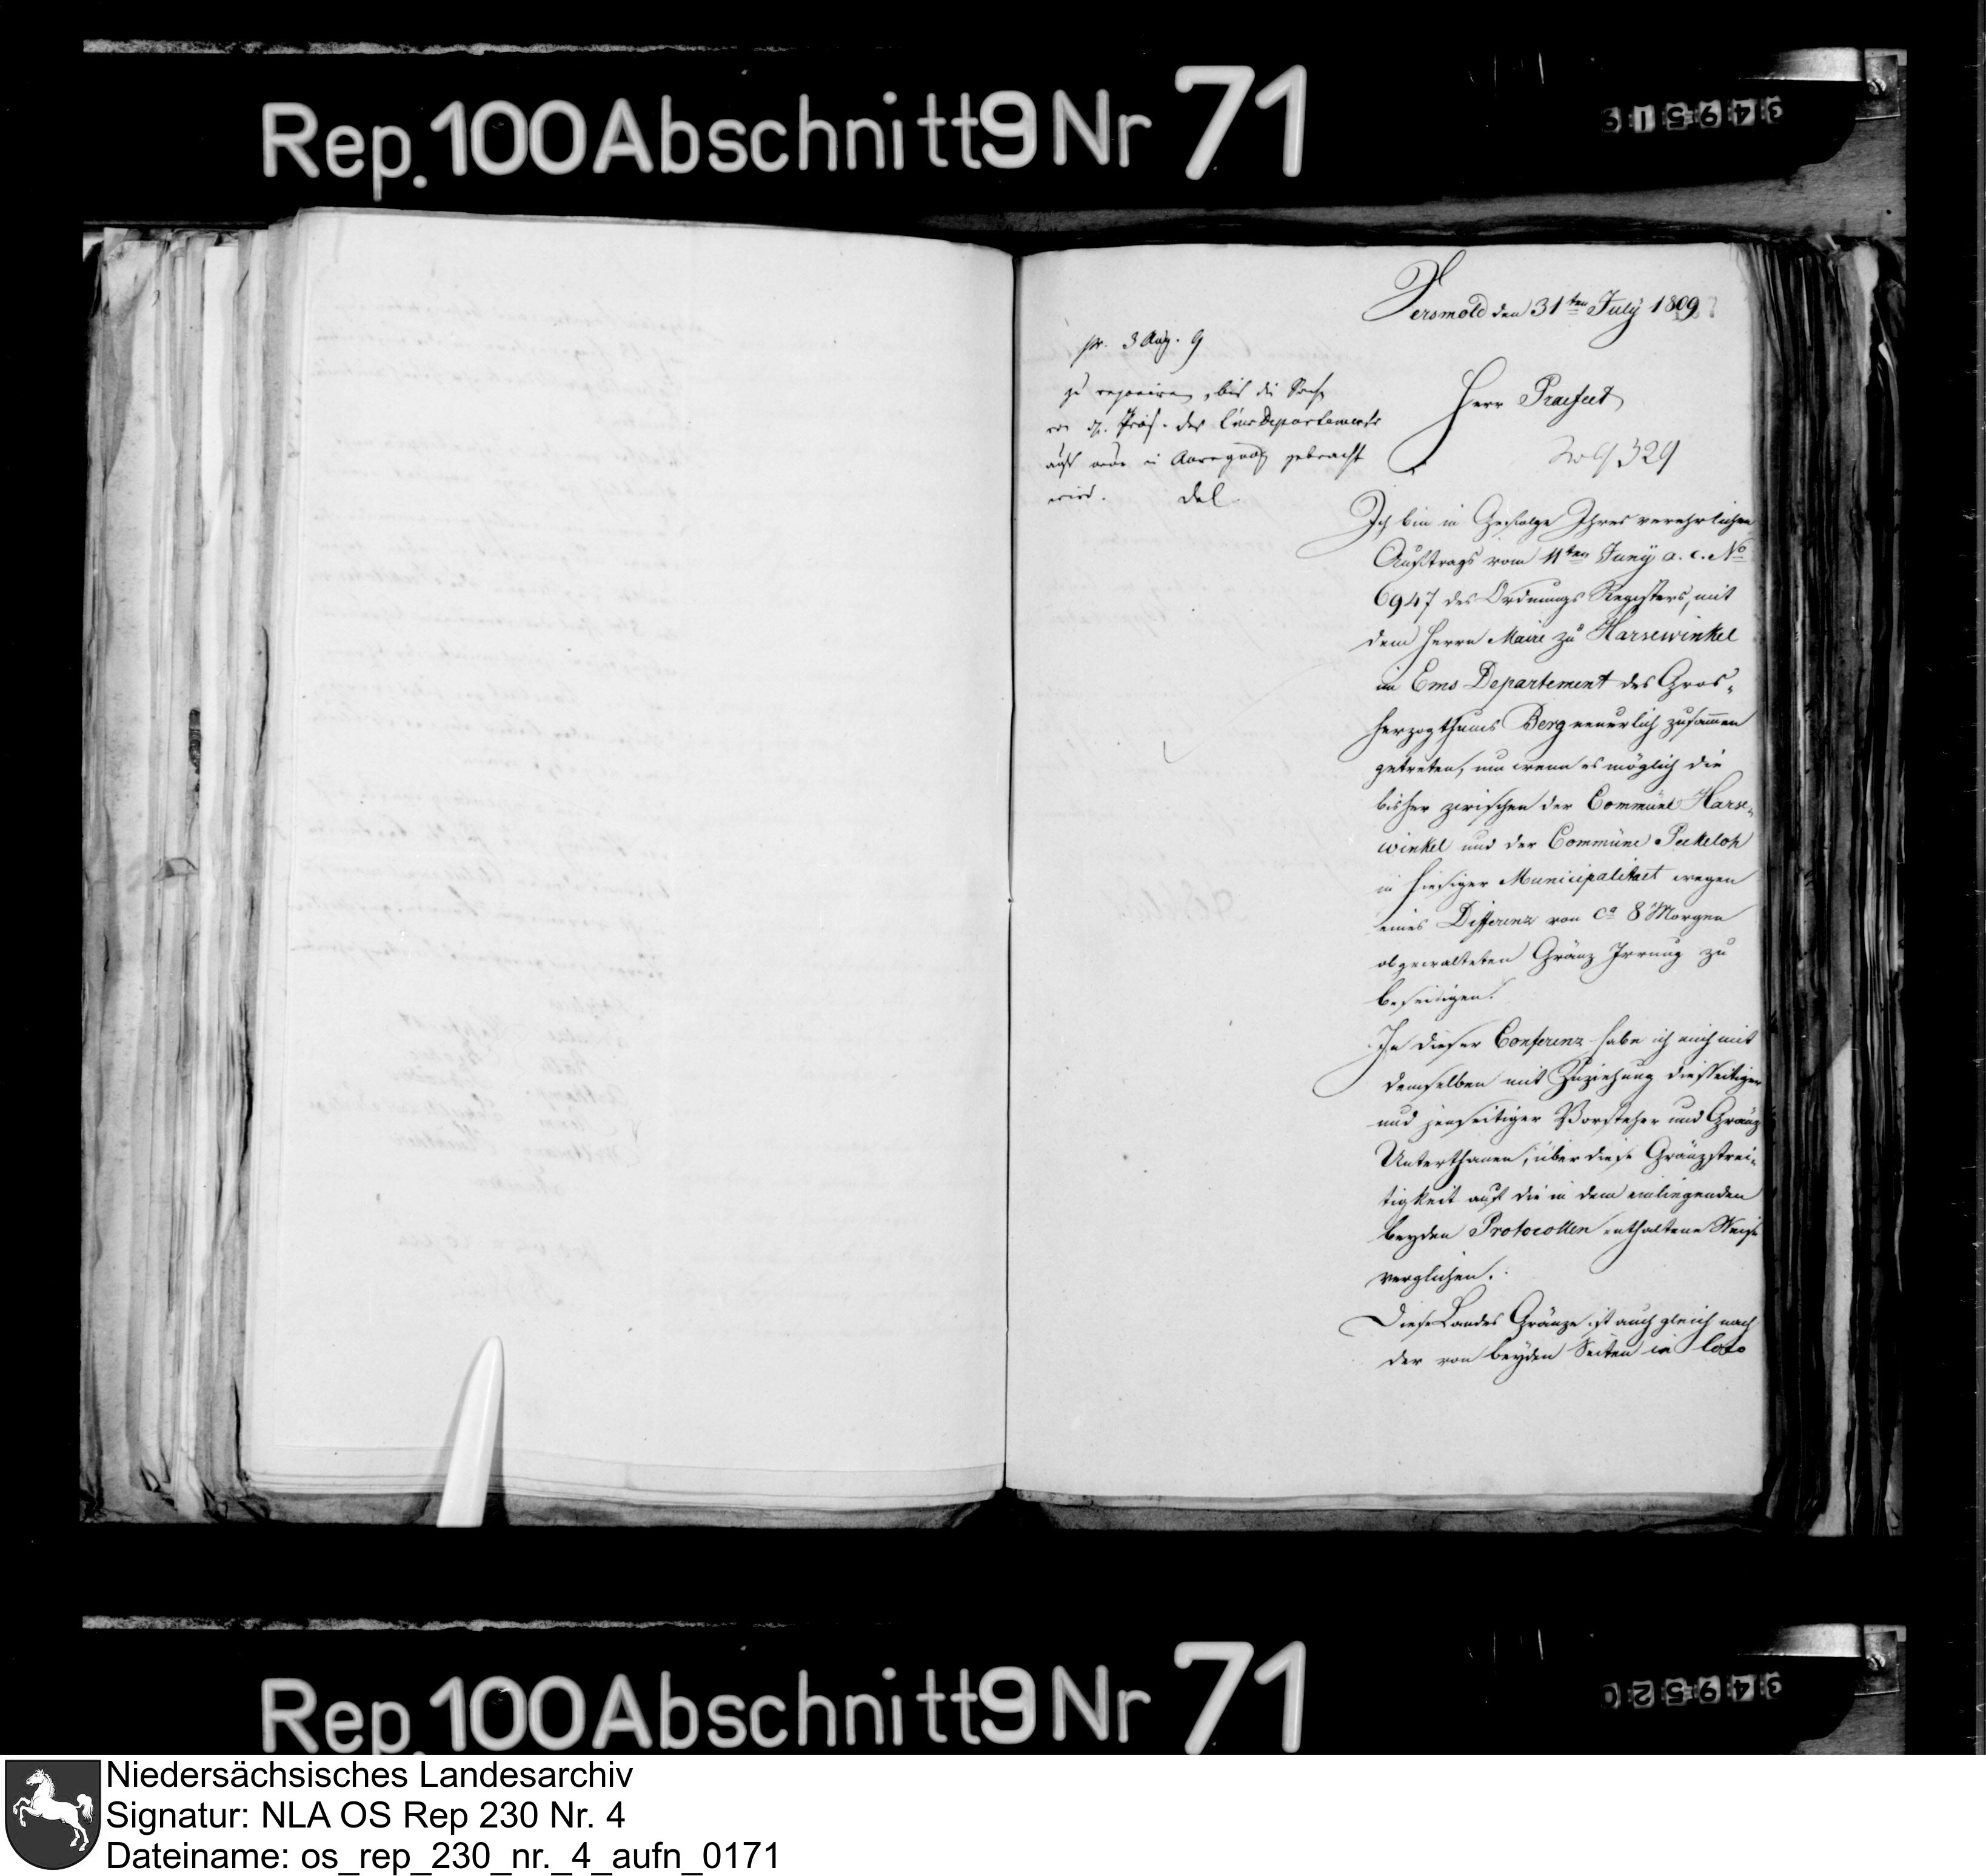 Rep. 100 Abschnitt 9 Nr 71
Versmold den 31ten July 1809
pr. 3 Aug. 9
zu reponiren, bis die Sache
von H. Präf. des Ems Departements
aufs neue in Anregung gebracht
wird. del.
Herr Praefect
9329
Ich bin in Gefolge Ihres verehrlichen
Auftrags vom 11ten Juny a. c. No
6947 des Ordnungs Registers, mit
dem Herrn Maire zu Harsewinkel
im Ems Departement des Gros-
herzogthums Berg neuerlich zusammen
getreten, um wenn es möglich die
bisher zwischen der Commüne Harse-
winkel und der Commüne Peckeloh
in hiesiger Municipalitaet wegen
eines Differenz von ca 8 Morgen
obgewalteten Gränz Irrung zu
beseitigen.
In dieser Conferenz habe ich mich mit
demselben mit Zuziehung diesseitiger
und jenseitiger Vorsteher und Gränz
Unterthanen, über diese Gränzstrei-
tigkeit auf die in dem einliegenden
beyden Protocollen enthaltene Weise
verglichen.
Diese Landes Gränze ist auch gleich nach
der von beyden Seiten in loco
Rep. 100 Abschnitt 9 Nr 71
Niedersächsisches Landesarchiv
Signatur: NLA OS Rep 230 Nr. 4
Dateiname: os_rep_230_nr._4_aufn_0171